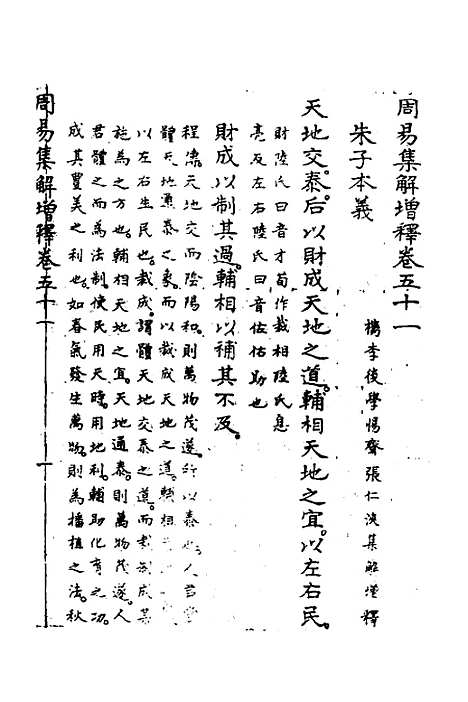 周易集解增釋卷五十一
檇李後學惕齋張仁浹集解增釋
朱子本義
天地交泰后以財成天地之道輔相天地之宜以左右民
財陸氏曰音才荀作裁相陸氏息
亮反左右陸氏曰音佐佑助也
財成以制其過輔相以補其不及
程傳天地交而陰陽和則萬物茂遂所以泰也人君當
體天地通泰之象而以裁成天地之道輔相
以左右生民也裁成謂體天地交泰之道而裁制成其
施為之方也輔相天地之宜天地通泰則萬物茂遂人
君體之而為法制使民用天時因地利輔助化育之功
成其豐美之利也如春氣發生萬物則為播植之法秋
周易集解增釋卷五十一
一